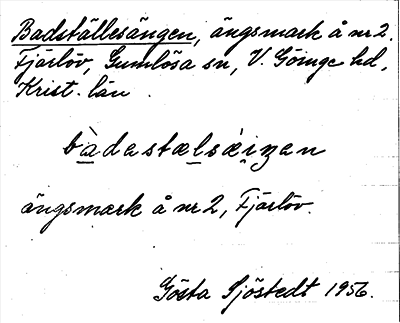 Badställesängen, ängsmark å nr 2.
Fjärlöv, Gumlösa sn, V. Göinge hd,
Krist. län.
bàdestælsæ̀iŋen
ängsmark å nr 2, Fjärlöv.
Gösta Sjöstedt 1956.